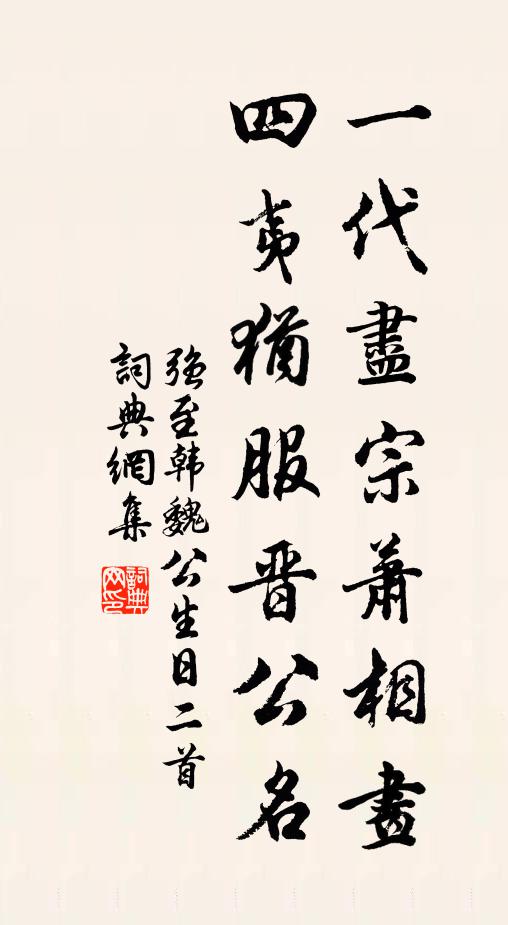 一代盡宗蕭相畫
四夷猶服晋公名
强至韩魏公生日二首
詞典網集
詞典網印